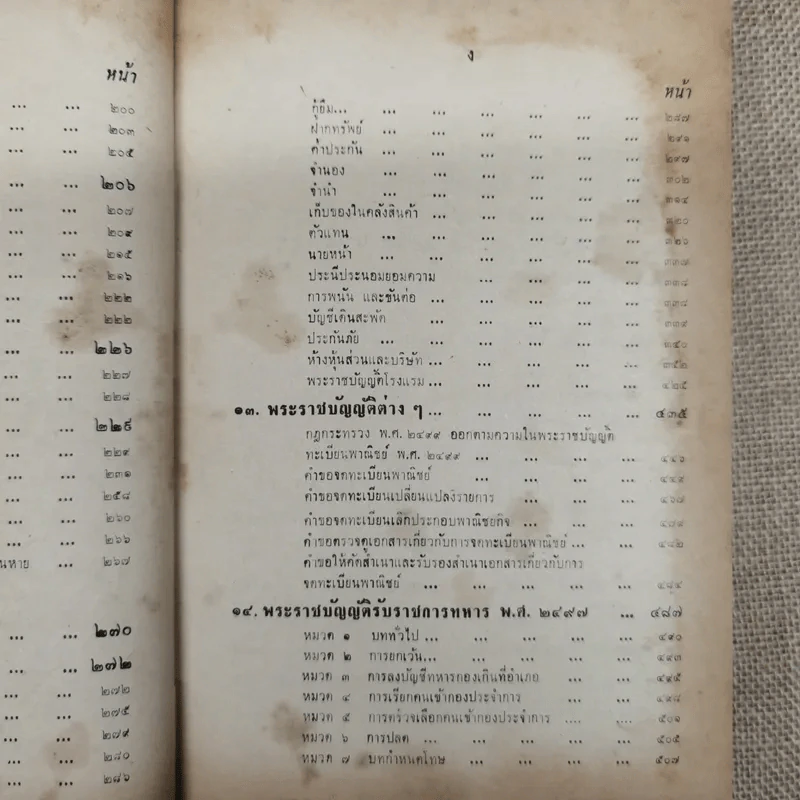 หน้า
... ... ๒๐๐
... ... ๒๐๓
... ... ๒๐๕
... ... ๒๐๖
... ... ๒๐๗
... ... ๒๐๙
... ... ๒๑๕
... ... ๒๑๖
... ... ๒๒๒
... ... ๒๒๒
... ... ๒๒๖
... ... ๒๒๗
... ... ๒๒๘
... ... ๒๒๙
... ... ๒๒๙
... ... ๒๓๑
... ... ๒๕๘
... ... ๒๖๐
... ... ๒๖๖
นหาย ... ๒๖๗
... ... ๒๗๐
... ... ๒๗๒
... ... ๒๗๒
... ... ๒๗๕
... ... ๒๗๙
... ... ๒๘๐
... ... ๒๘๖
ง
หน้า
กู้ยืม... ... ... ... ... ... ... ๒๘๗
ฝากทรัพย์ ... ... ... ... ... ... ๒๙๑
ค้ำประกัน ... ... ... ... ... ... ๒๙๗
จำนอง ... ... ... ... ... ... ๓๐๒
จำนำ ... ... ... ... ... ... ๓๑๔
เก็บของในคลังสินค้า ... ... ... ... ... ๓๒๐
ตัวแทน ... ... ... ... ... ...
นายหน้า ... ... ... ... ... ... ๓๓๗
ประนีประนอมยอมความ ... ... ... ... ๓๓๘
การพนัน และขันต่อ ... ... ... ... ... ๓๓๘
บัญชีเดินสะพัด ... ... ... ... ... ๓๓๙
ประกันภัย ... ... ... ... ... ... ๓๔๐
ห้างหุ้นส่วนและบริษัท ... ... ... ... ... ๓๕๒
พระราชบัญญัติโรงแรม ... ... ... ... ... ๔๒๕
๑๓. พระราชบัญญัติต่าง ๆ ... ... ... ... ... ๔๓๕
กฎกระทรวง พ.ศ. ๒๔๙๙ ออกตามความในพระราชบัญญัติ
ทะเบียนพาณิชย์ พ.ศ. ๒๔๙๙ ... ... ... ... ๔๔๖
คำขอจดทะเบียนพาณิชย์ ... ... ... ... ... ๔๔๙
คำขอจดทะเบียนเปลี่ยนแปลงรายการ ... ... ... ๔๖๗
คำขอจดทะเบียนเลิกประกอบพาณิชยกิจ ... ... ...
คำขอตรวจดูเอกสารเกี่ยวกับการจดทะเบียนพาณิชย์ ... ... ๔๘๒
คำขอให้คัดสำเนาและรับรองสำเนาเอกสารเกี่ยวกับการ
จดทะเบียนพาณิชย์ ... ... ... ... ... ๔๘๔
๑๔. พระราชบัญญัติรับราชการทหาร พ.ศ. ๒๔๙๗ ... ๔๘๗
หมวด ๑ บททั่วไป ... ... ... ... ... ๔๙๐
หมวด ๒ การยกเว้น... ... ... ... ... ๔๙๓
หมวด ๓ การลงบัญชีทหารกองเกินที่อำเภอ ... ... ๔๙๕
หมวด ๔ การเรียกคนเข้ากองประจำการ ... ... ๔๙๘
หมวด ๕ การตรวจเลือกคนเข้ากองประจำการ .... .... ๕๐๑
หมวด ๖ การปลด ... ... ... ... ... ๕๐๕
หมวด ๗ บทกำหนดโทษ ... ... ... ... ๕๐๗